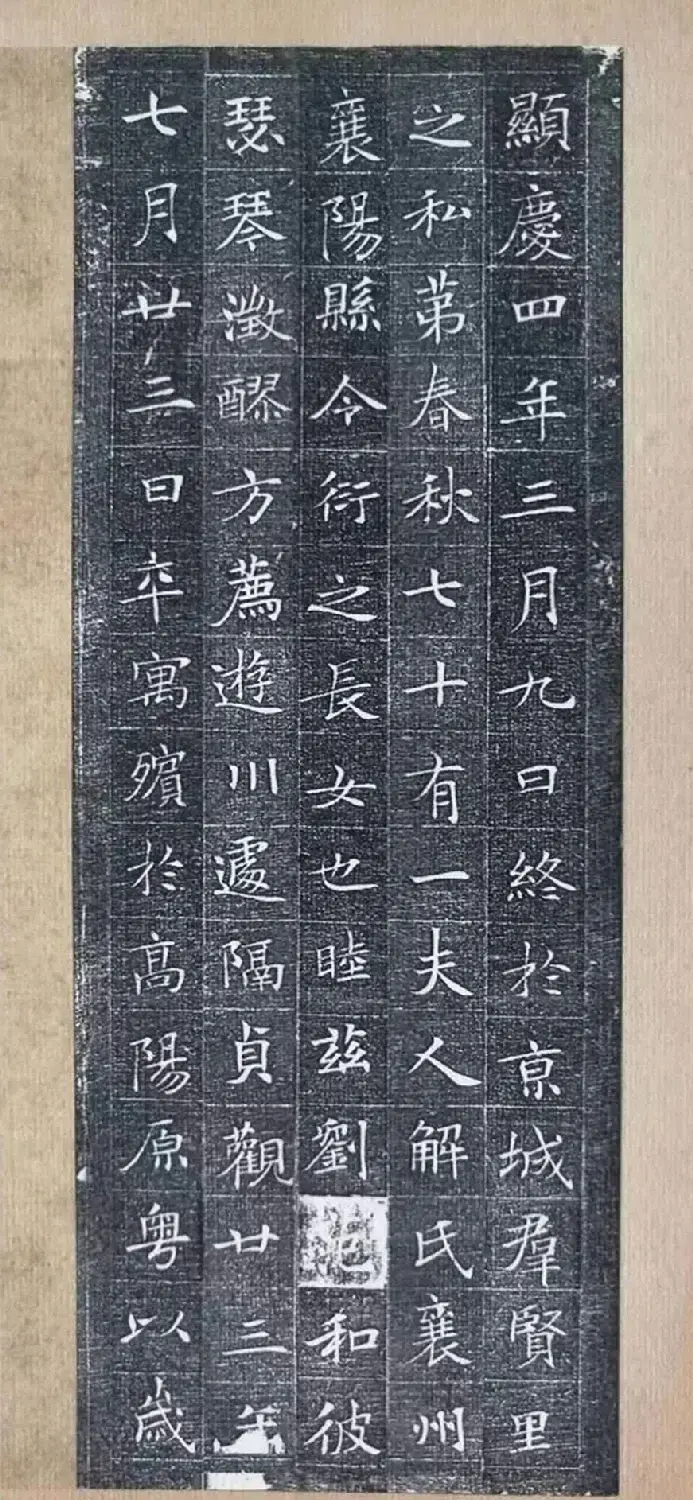 顯慶四年三月九日終於亰城羣賢里
之私苐春秋七十有一夫人解氏襄州
襄陽縣令衍之長女也睦茲劉和彼
瑟琴澂醪方薦遊川遽隔貞觀廿三年
七月廿三日卒寓殯於高陽原粵以歲